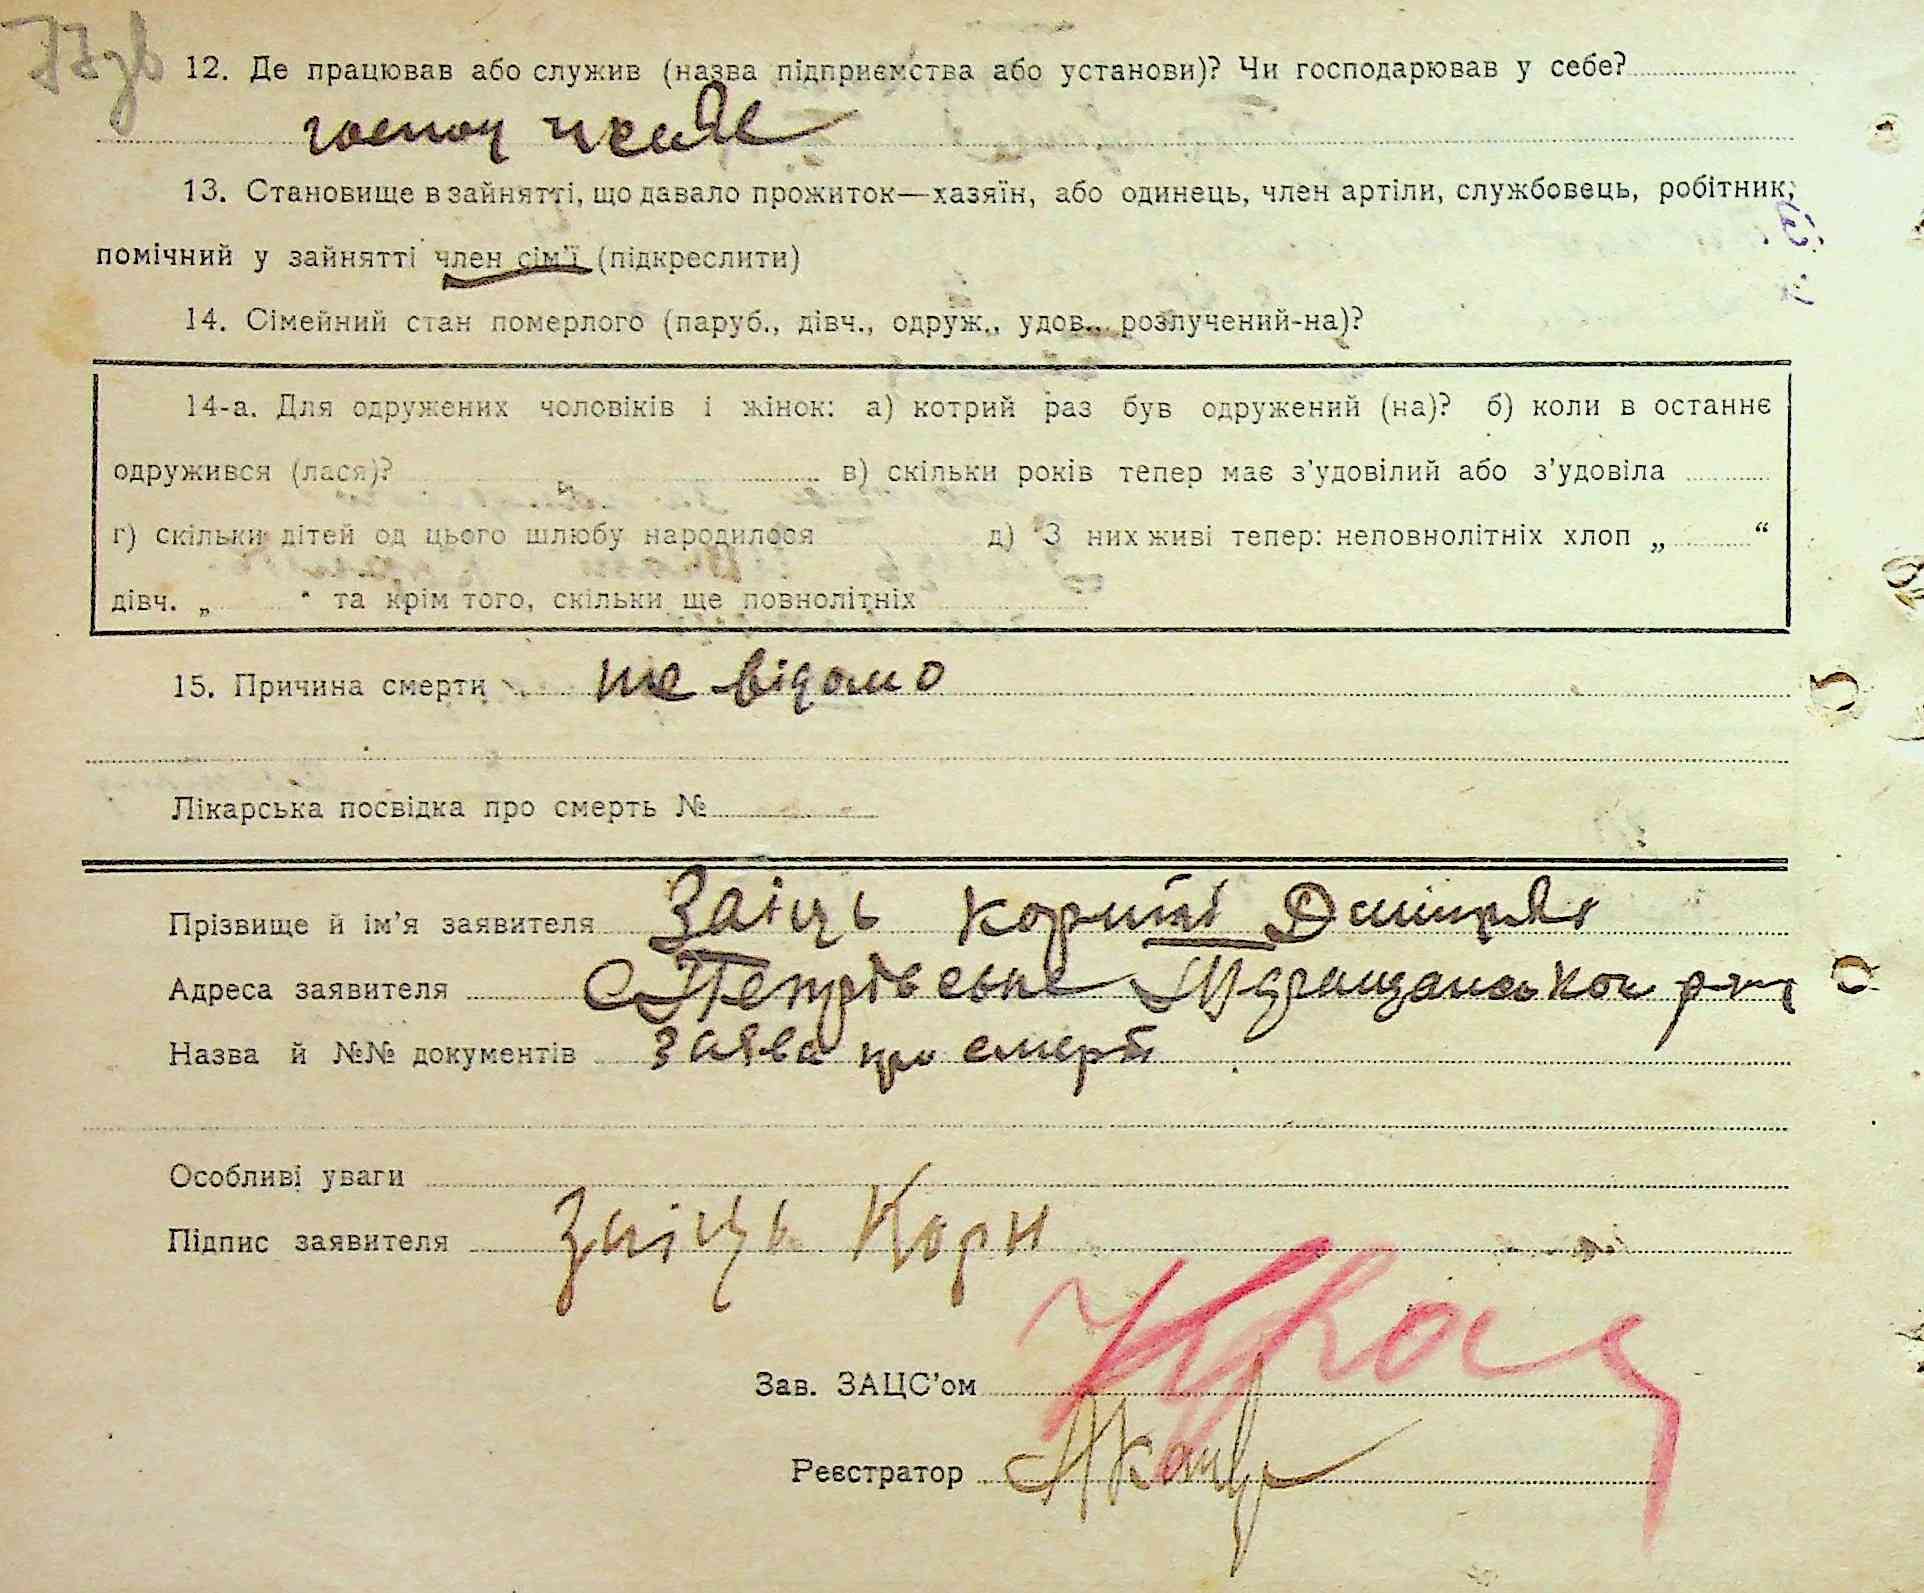 77зв
12. Де працював або служив (назва підприємства або установи)? Чи господарював у себе?
13. Становище в зайнятті, що давало прожиток—хазяїн, або одинець, член артіли, службовець, робітник,
помічний у зайнятті член сім'ї (підкреслити)
14. Сімейний стан померлого (паруб., дівч., одруж., удов., розлучений-на)?
14-а. Для одружених чоловіків і жінок: а) котрий раз був одружений (на)? б) коли в останнє
одружився (лася)? в) скільки років тепер має з'удовілий або з'удовіла
г) скільки дітей од цього шлюбу народилося д) З них живі тепер: неповнолітніх хлоп „ “
дівч. „ “ та крім того, скільки ще повнолітніх
15. Причина смерти не відомо
Лікарська посвідка про смерть №
Прізвище й ім'я заявителя Заіць Корній
Адреса заявителя с Петрівське
Назва й №№ документів заява про смерть
Особливі уваги
Підпис заявителя Заіць Корн
Зав. ЗАЦС'ом
Реєстратор